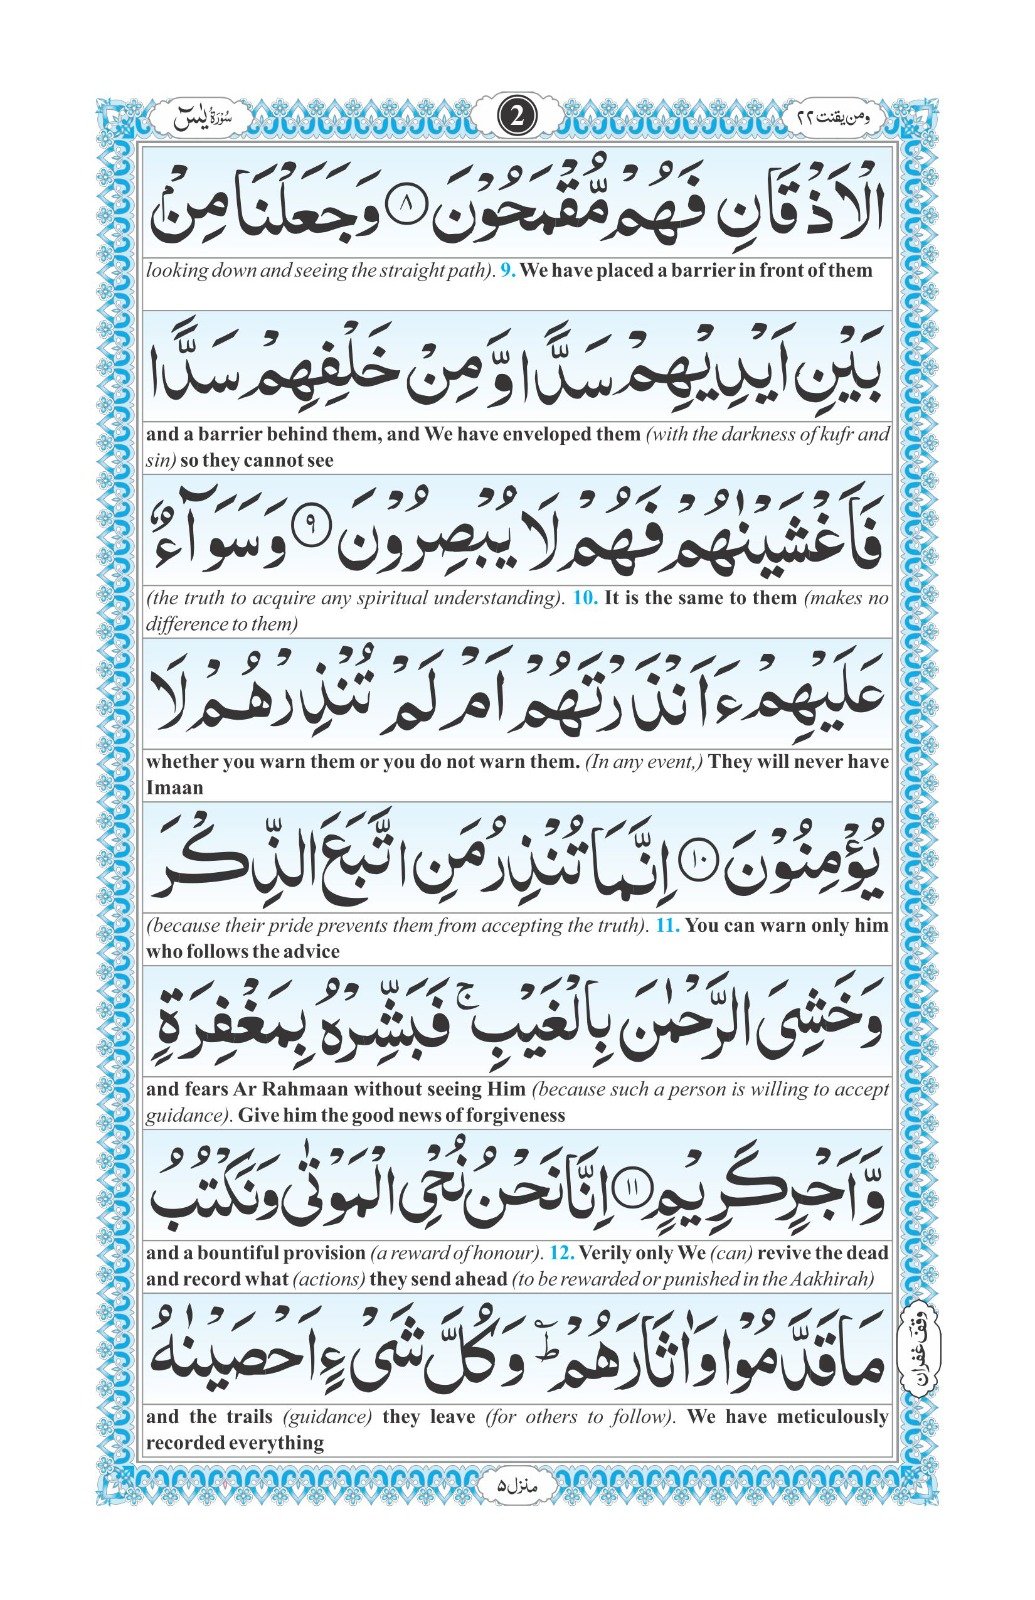 سُوْرَةُ يٰسٓ
2
ومن يقنت ٢٢
الْاَذْقَانِ فَهُمْ مُّقْمَحُوْنَ ۝٨ وَجَعَلْنَا مِنْۢ
looking down and seeing the straight path). 9. We have placed a barrier in front of them
بَيْنِ اَيْدِيْهِمْ سَدًّا وَّ مِنْ خَلْفِهِمْ سَدًّا
and a barrier behind them, and We have enveloped them (with the darkness of kufr and
sin) so they cannot see
فَاَغْشَيْنٰهُمْ فَهُمْ لَا يُبْصِرُوْنَ ۝٩ وَسَوَآءٌ
(the truth to acquire any spiritual understanding). 10. It is the same to them (makes no
difference to them)
عَلَيْهِمْ ءَاَنْذَرْتَهُمْ اَمْ لَمْ تُنْذِرْهُمْ لَا
whether you warn them or you do not warn them. (In any event,) They will never have
Imaan
يُؤْمِنُوْنَ ۝١٠ اِنَّمَا تُنْذِرُ مَنِ اتَّبَعَ الذِّكْرَ
(because their pride prevents them from accepting the truth). 11. You can warn only him
who follows the advice
وَخَشِيَ الرَّحْمٰنَ بِالْغَيْبِ ۚ فَبَشِّرْهُ بِمَغْفِرَةٍ
and fears Ar Rahmaan without seeing Him (because such a person is willing to accept
guidance). Give him the good news of forgiveness
وَّاَجْرٍ كَرِيْمٍ ۝١١ اِنَّا نَحْنُ نُحْيِ الْمَوْتٰى وَنَكْتُبُ
and a bountiful provision (a reward of honour). 12. Verily only We (can) revive the dead
and record what (actions) they send ahead (to be rewarded or punished in the Aakhirah)
مَا قَدَّمُوْا وَاٰثَارَهُمْ ؕ وَكُلَّ شَيْءٍ اَحْصَيْنٰهُ
وقف غفران
and the trails (guidance) they leave (for others to follow). We have meticulously
recorded everything
منزل ۵